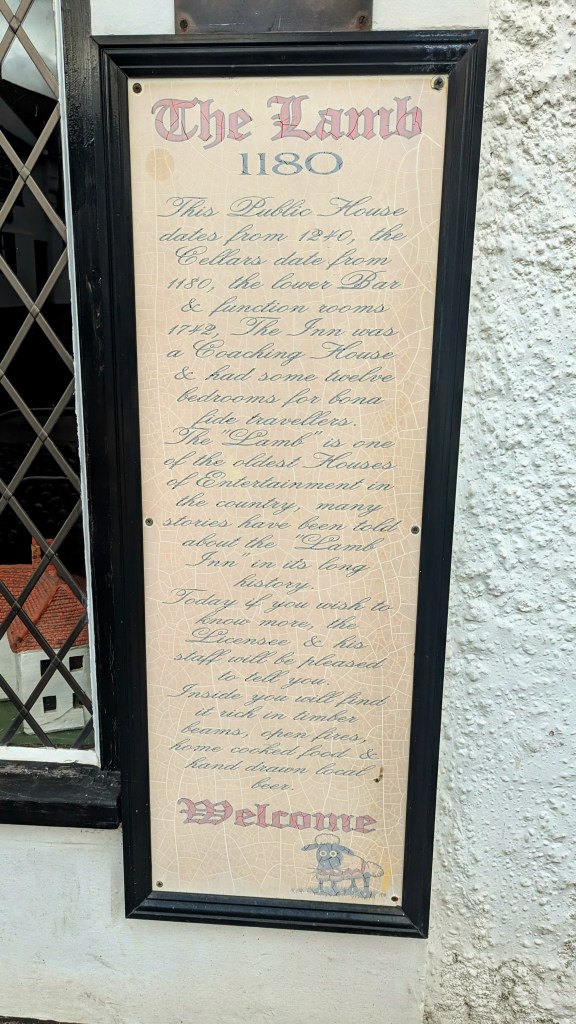 The Lamb
1180
This Public House
dates from 1240, the
Cellars date from
1180, the lower Bar
& function rooms
1742, The Inn was
a Coaching House
& had some twelve
bedrooms for bona
fide travellers.
The "Lamb" is one
of the oldest Houses
of Entertainment in
the country, many
stories have been told
about the "Lamb
Inn" in its long
history.
Today if you wish to
know more, the
Licensee & his
staff will be pleased
to tell you.
Inside you will find
it rich in timber
beams, open fires,
home cooked food &
hand drawn local
beer.
Welcome